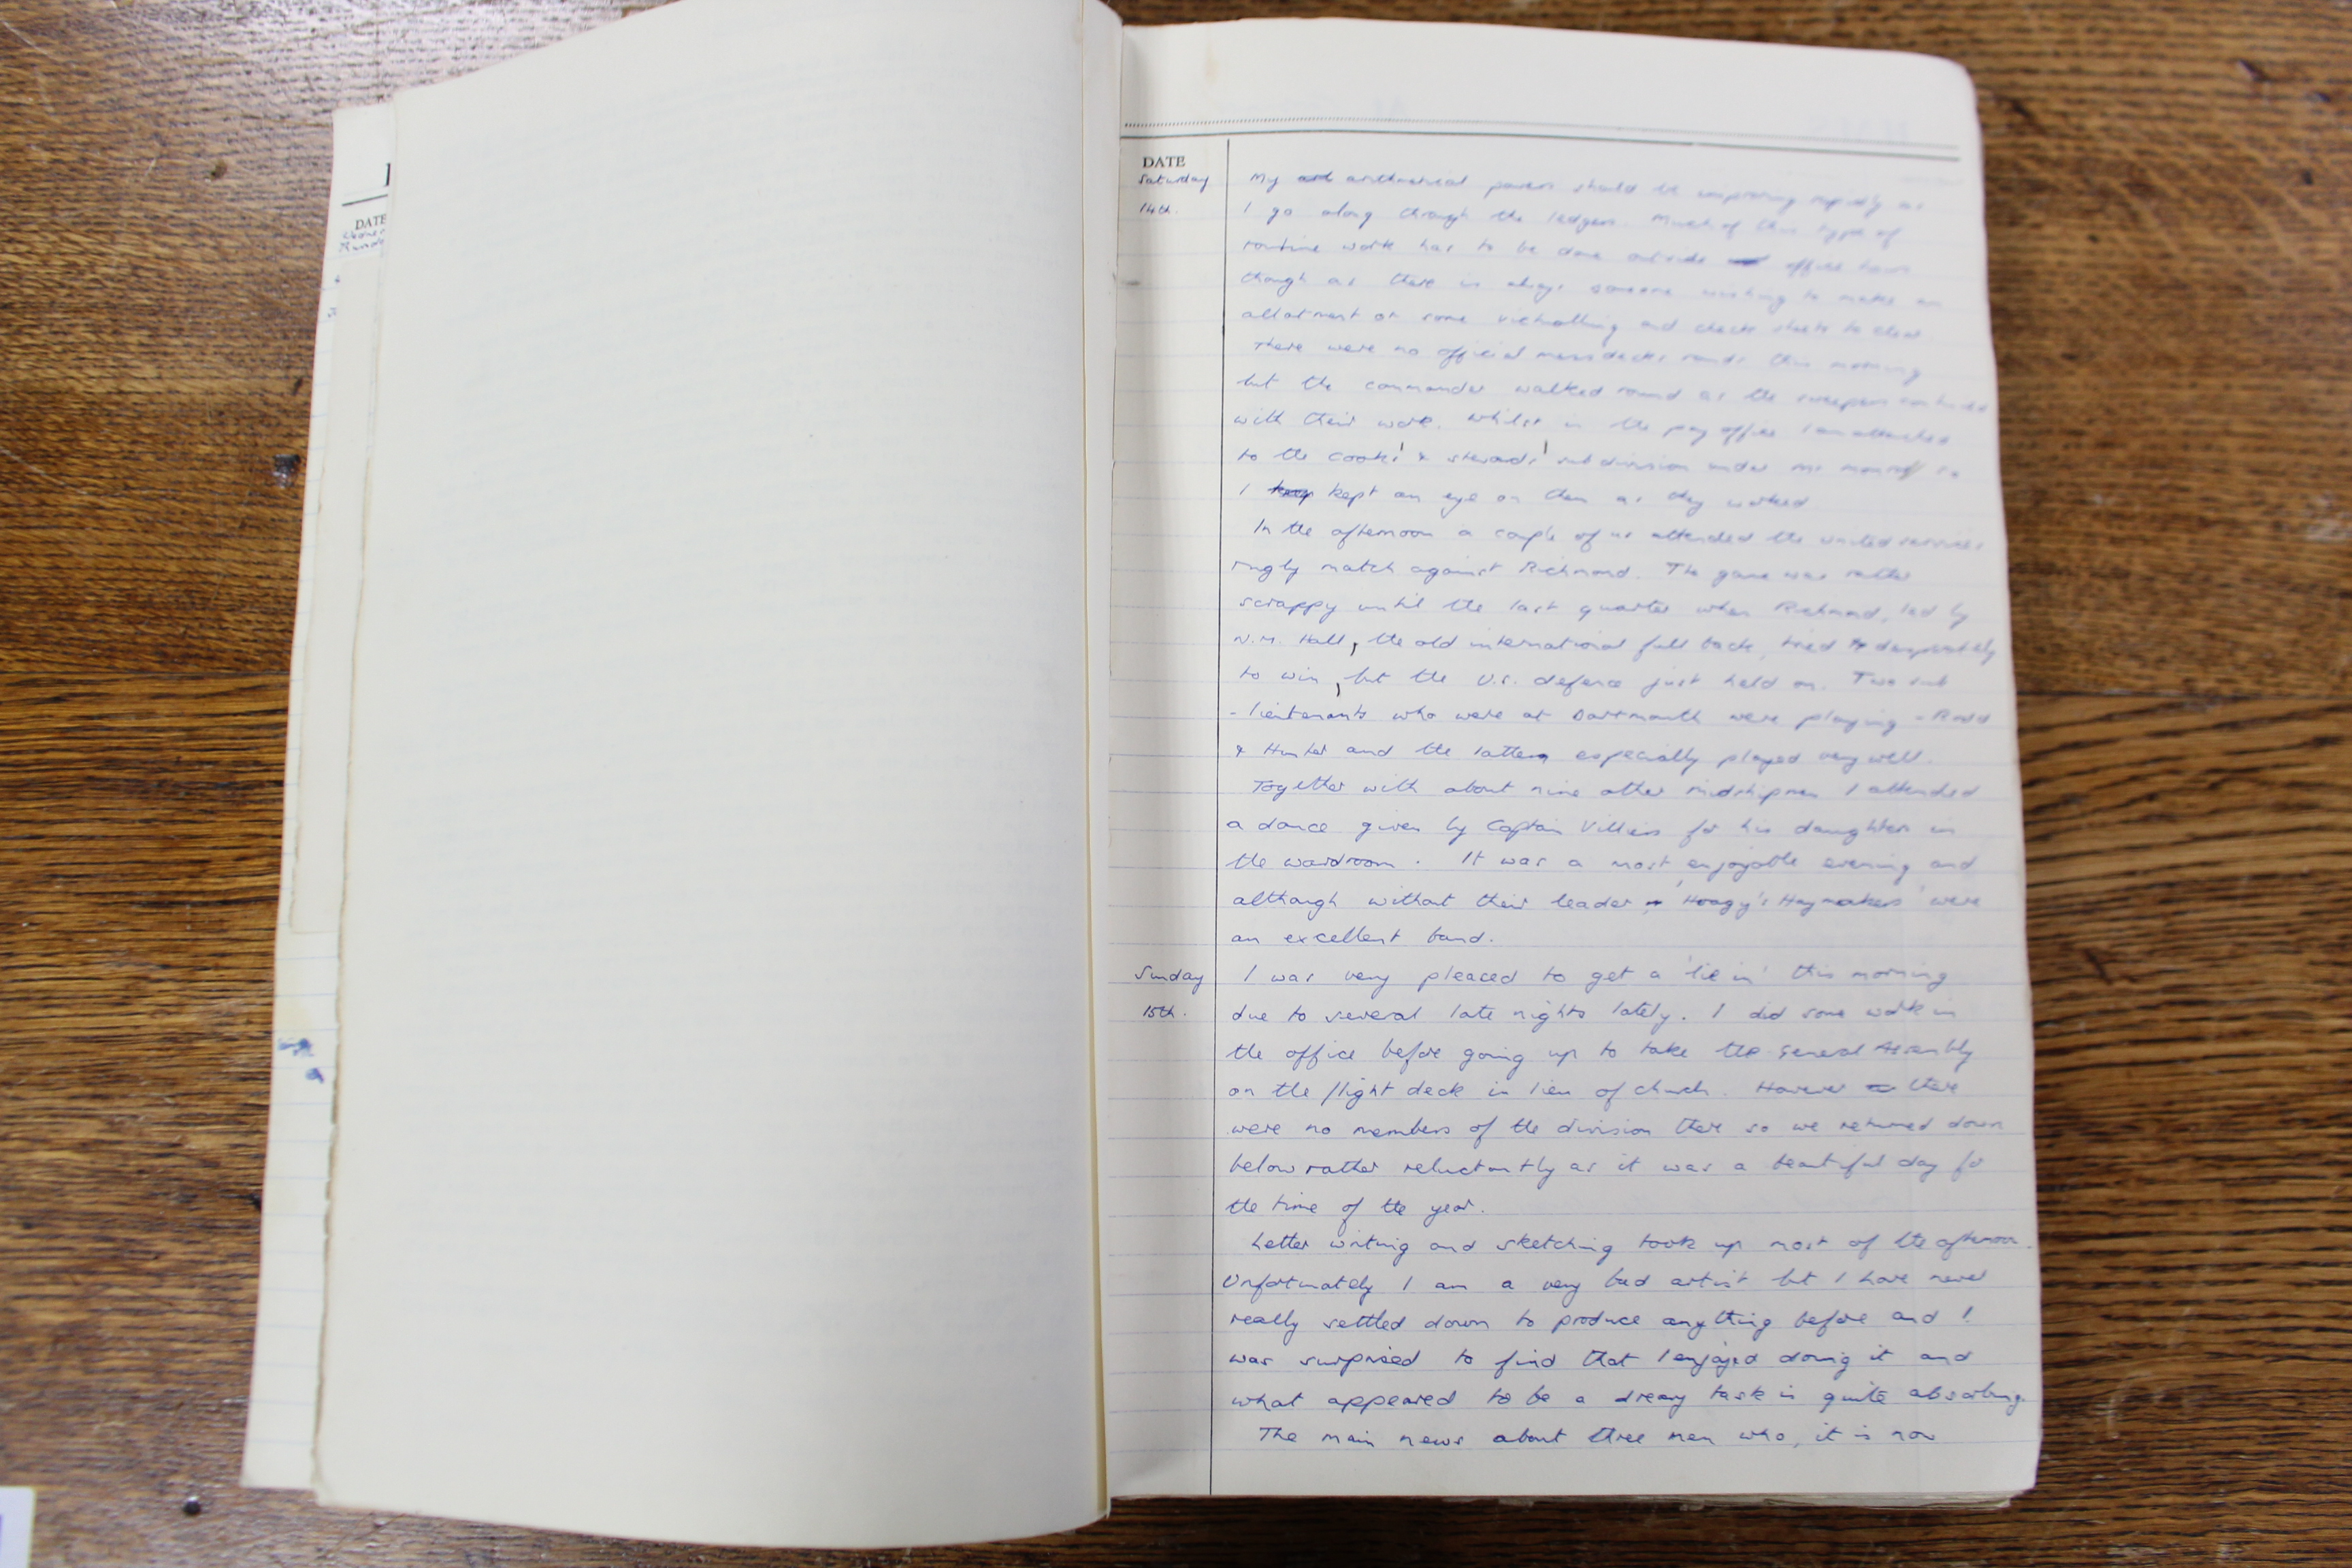 DATE
Wednes
DATE
Saturday
14th.
My arithmetical powers should be improving rapidly as
I go along through the ledgers. Much of this type of
routine work has to be done outside office hours
though as there is always someone wishing to make an
allotment or some victualling and check sheets to clear
There were no official messdecks rounds this morning
but the commander walked round as the sweepers continued
with their work. Whilst in the pay office I am attached
to the cooks' & stewards' subdivision under Mr so
I keep kept an eye on them as they worked
In the afternoon a couple of us attended the united services
rugby match against Richmond. The game was rather
scrappy until the last quarter when Richmond, led by
N.M. Hall, the old international full back, tried desperately
to win, but the U.S. defence just held on. Two sub
- lieutenants who were at Dartmouth were playing -
& Hunter and the latter especially played very well.
Together with about nine other midshipmen I attended
a dance given by Captain Villiers for his daughter in
the wardroom. It was a most enjoyable evening and
although without their leader, 'Hoagy's Haymakers' were
an excellent band.
Sunday
15th.
I was very pleaced to get a 'lie in' this morning
due to several late nights lately. I did some work in
the office before going up to take the General Assembly
on the flight deck in lieu of church. However there
were no members of the division there so we returned down
below rather reluctantly as it was a beautiful day for
the time of the year.
Letter writing and sketching took up most of the afternoon.
Unfortunately I am a very bad artist but I have never
really settled down to produce anything before and I
was surprised to find that I enjoyed doing it and
what appeared to be a dreary task is quite absorbing.
The main news about three men who, it is now